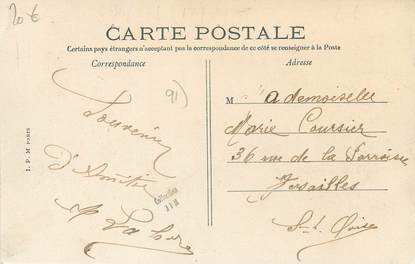 20 €
CARTE POSTALE
Certains pays étrangers n'acceptant pas la correspondance de ce côté se renseigner à la Poste
Correspondance
Adresse
91)
Souvenir
D'Amitié
Mademoiselle
Marie Coursier
36 rue de la
Versailles
S-et-Oise
I. P. M PARIS
Collection